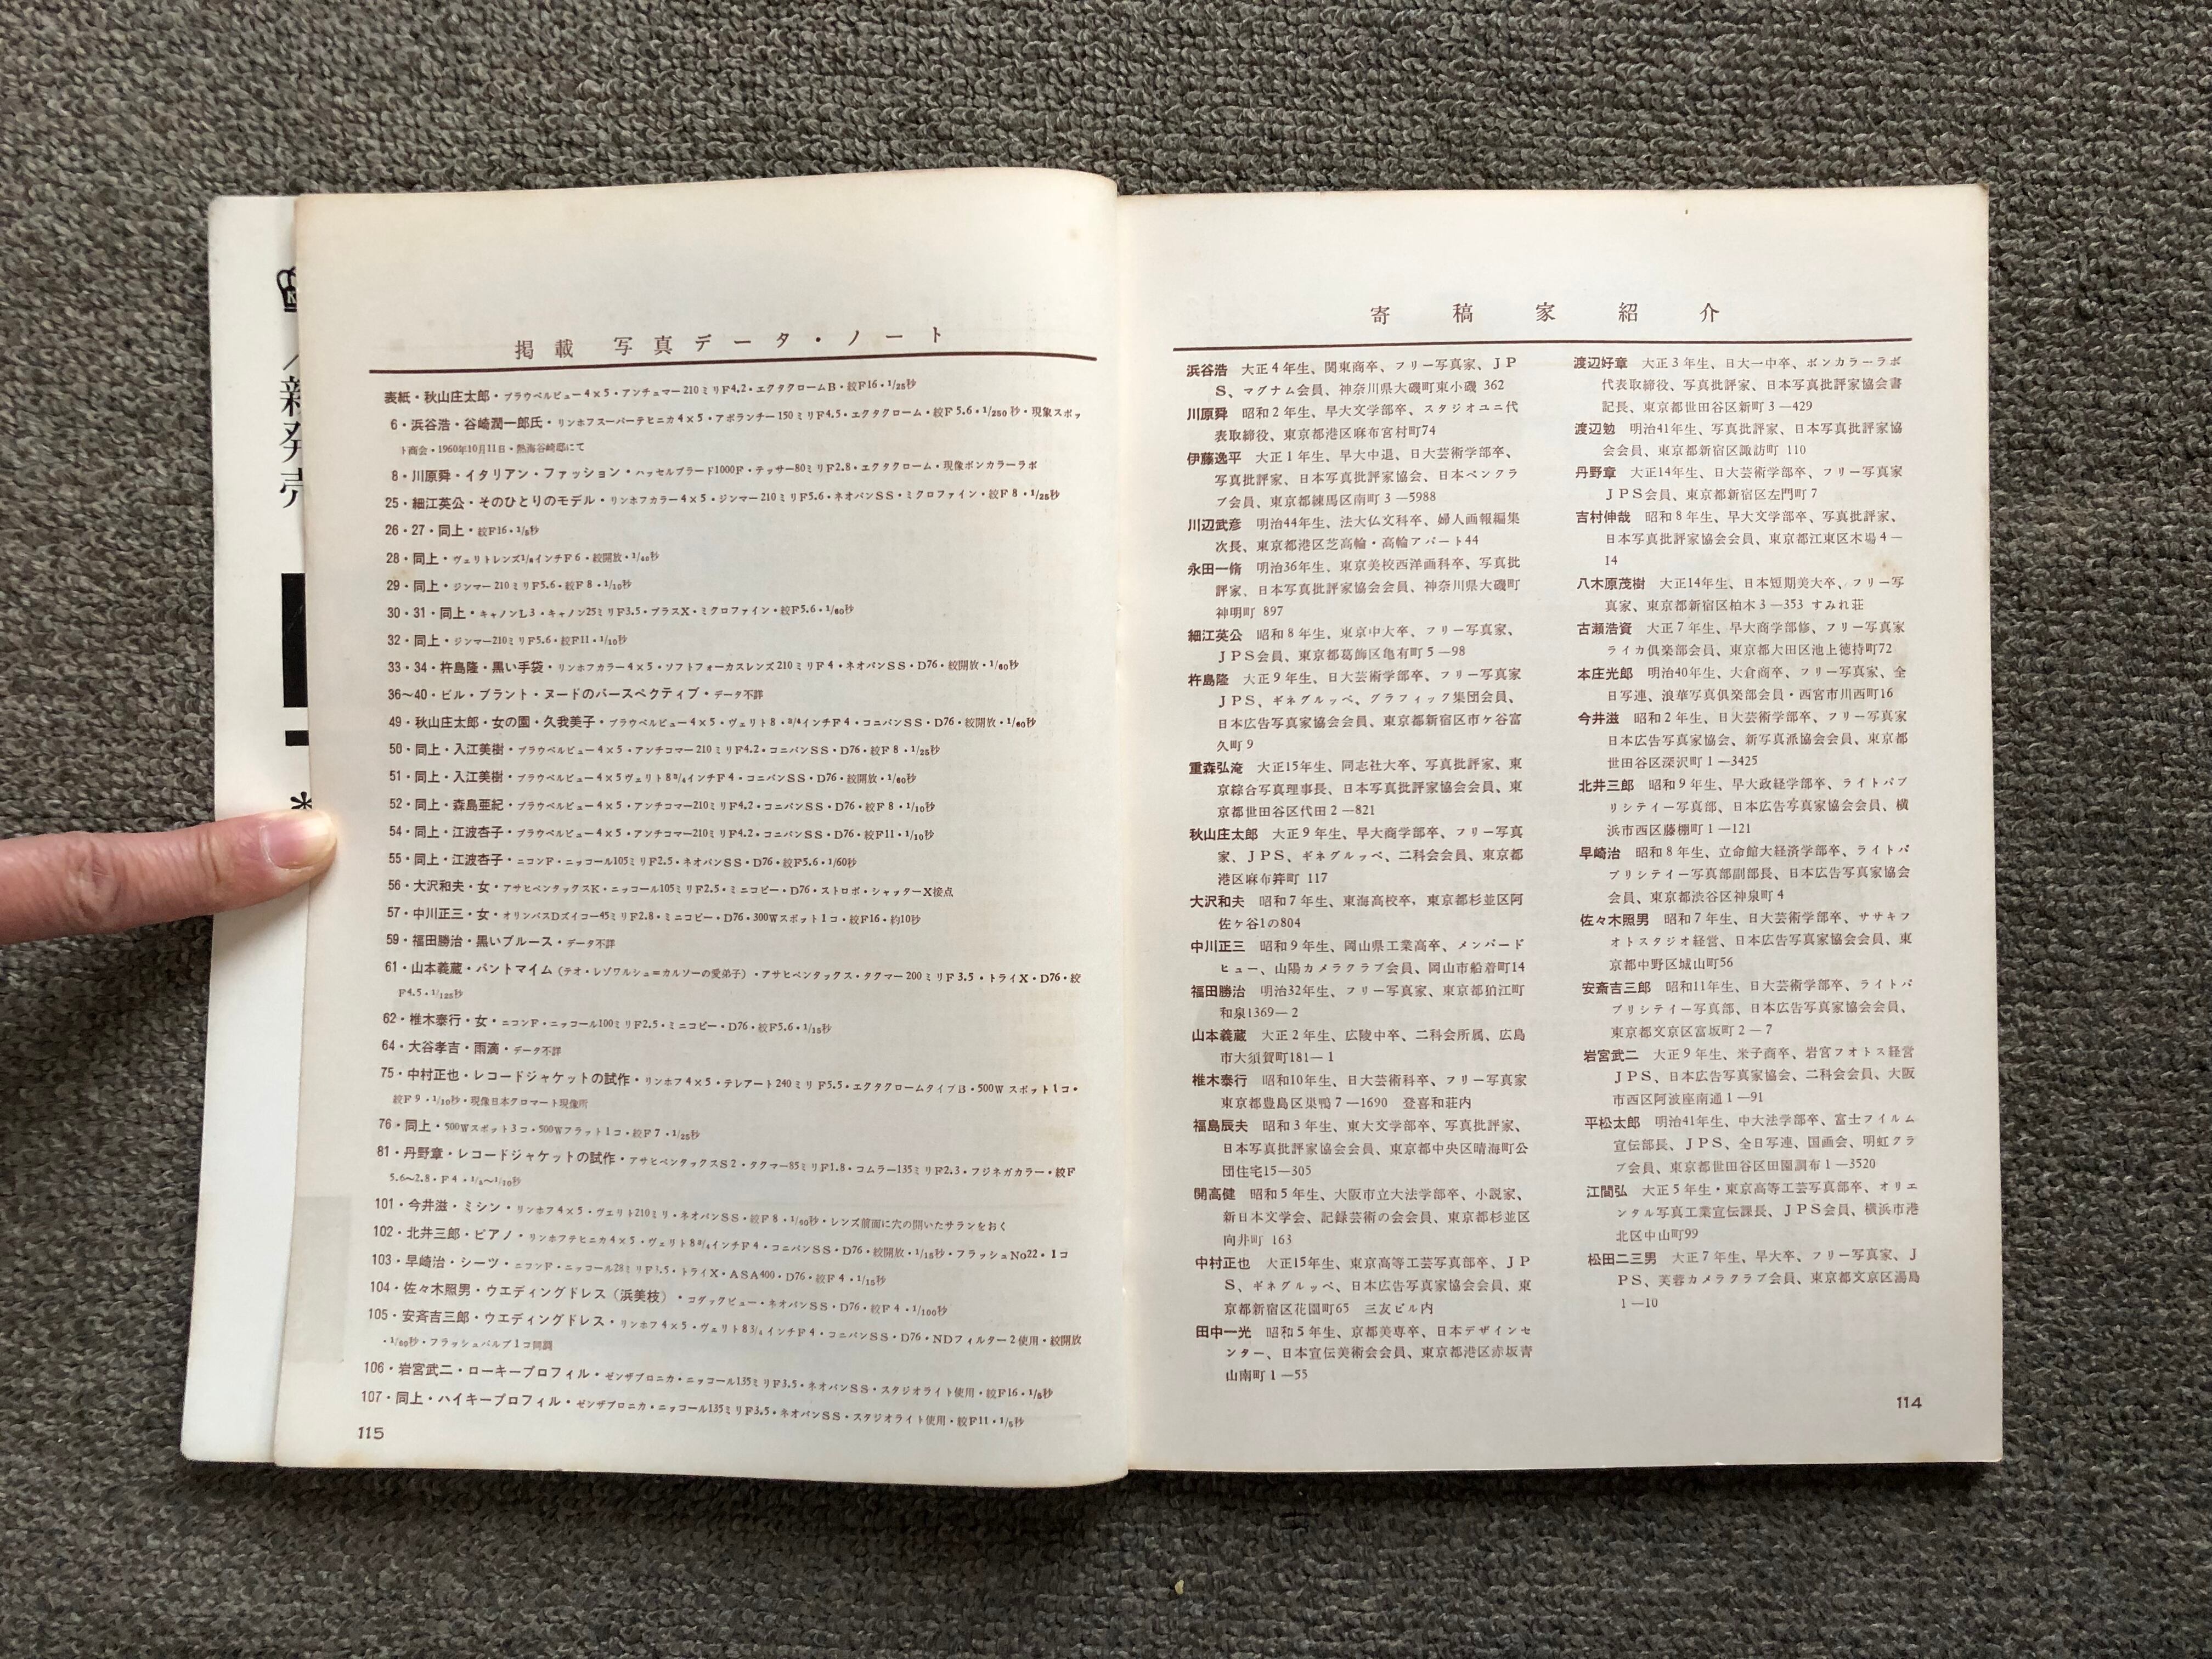 寄稿家紹介
浜谷浩　大正4年生、関東商卒、フリー写真家、JP
S、マグナム会員、神奈川県大磯町東小磯 362
川原舜　昭和2年生、早大文学部卒、スタジオユニ代
表取締役、東京都港区麻布宮村町74
伊藤逸平　大正1年生、早大中退、日大芸術学部卒、
写真批評家、日本写真批評家協会、日本ペンクラ
ブ会員、東京都練馬区南町3—5988
川辺武彦　明治44年生、法大仏文科卒、婦人画報編集
次長、東京都港区芝高輪・高輪アパート44
永田一脩　明治36年生、東京美校西洋画科卒、写真批
評家、日本写真批評家協会会員、神奈川県大磯町
神明町 897
細江英公　昭和8年生、東京中大卒、フリー写真家、
JPS会員、東京都葛飾区亀有町5—98
杵島隆　大正9年生、日大芸術学部卒、フリー写真家
JPS、ギネグルッペ、グラフィック集団会員、
日本広告写真家協会会員、東京都新宿区市ケ谷富
久町9
重森弘淹　大正15年生、同志社大卒、写真批評家、東
京綜合写真理事長、日本写真批評家協会会員、東
京都世田谷区代田2—821
秋山庄太郎　大正9年生、早大商学部卒、フリー写真
家、JPS、ギネグルッペ、二科会会員、東京都
港区麻布笄町 117
大沢和夫　昭和7年生、東海高校卒，東京都杉並区阿
佐ケ谷1の804
中川正三　昭和9年生、岡山県工業高卒、メンバード
ヒュー、山陽カメラクラブ会員、岡山市船着町14
福田勝治　明治32年生、フリー写真家、東京都狛江町
和泉1369—2
山本義蔵　大正2年生、広陵中卒、二科会所属、広島
市大須賀町181—1
椎木泰行　昭和10年生、日大芸術科卒、フリー写真家
東京都豊島区巣鴨7—1690　登喜和荘内
福島辰夫　昭和3年生、東大文学部卒、写真批評家、
日本写真批評家協会会員、東京都中央区晴海町公
団住宅15—305
開高健　昭和5年生、大阪市立大法学部卒、小説家、
新日本文学会、記録芸術の会会員、東京都杉並区
向井町 163
中村正也　大正15年生、東京高等工芸写真部卒、JP
S、ギネグルッペ、日本広告写真家協会会員、東
京都新宿区花園町65　三友ビル内
田中一光　昭和5年生、京都美専卒、日本デザインセ
ンター、日本宣伝美術会会員、東京都港区赤坂青
山南町1—55
渡辺好章　大正3年生、日大一中卒、ボンカラーラボ
代表取締役、写真批評家、日本写真批評家協会書
記長、東京都世田谷区新町3—429
渡辺勉　明治41年生、写真批評家、日本写真批評家協
会会員、東京都新宿区諏訪町 110
丹野章　大正14年生、日大芸術学部卒、フリー写真家
JPS会員、東京都新宿区左門町7
吉村伸哉　昭和8年生、早大文学部卒、写真批評家、
日本写真批評家協会会員、東京都江東区木場4—
14
八木原茂樹　大正14年生、日本短期美大卒、フリー写
真家、東京都新宿区柏木3—353 すみれ荘
古瀬浩資　大正7年生、早大商学部修、フリー写真家
ライカ倶楽部会員、東京都大田区池上徳持町72
本庄光郎　明治40年生、大倉商卒、フリー写真家、全
日写連、浪華写真倶楽部会員・西宮市川西町16
今井滋　昭和2年生、日大芸術学部卒、フリー写真家
日本広告写真家協会、新写真派協会会員、東京都
世田谷区深沢町1—3425
北井三郎　昭和9年生、早大政経学部卒、ライトパブ
リシテイー写真部、日本広告写真家協会会員、横
浜市西区藤棚町1—121
早崎治　昭和8年生、立命館大経済学部卒、ライトパ
ブリシテイー写真部副部長、日本広告写真家協会
会員、東京都渋谷区神泉町4
佐々木照男　昭和7年生、日大芸術学部卒、ササキフ
オトスタジオ経営、日本広告写真家協会会員、東
京都中野区城山町56
安斎吉三郎　昭和11年生、日大芸術学部卒、ライトパ
ブリシテイー写真部、日本広告写真家協会会員、
東京都文京区富坂町2—7
岩宮武二　大正9年生、米子商卒、岩宮フオトス経営
JPS、日本広告写真家協会、二科会会員、大阪
市西区阿波座南通1—91
平松太郎　明治41年生、中大法学部卒、富士フイルム
宣伝部長、JPS、全日写連、国画会、明虹クラ
ブ会員、東京都世田谷区田園調布1—3520
江間弘　大正5年生・東京高等工芸写真部卒、オリエ
ンタル写真工業宣伝課長、JPS会員、横浜市港
北区中山町99
松田二三男　大正7年生、早大卒、フリー写真家、J
PS、芙蓉カメラクラブ会員、東京都文京区湯島
1—10
114
掲載　写真データ・ノート
表紙・秋山庄太郎・プラウベルビュー4×5・アンチュマー210ミリF4.2・エクタクロームB・絞F16・1/25秒
6・浜谷浩・谷崎潤一郎氏・リンホフスーパーテヒニカ4×5・アポランチー150ミリF4.5・エクタクローム・絞F5.6・1/250秒・現象スポッ
ト商会・1960年10月11日・熱海谷崎邸にて
8・川原舜・イタリアン・ファッション・ハッセルブラード1000F・テッサー80ミリF2.8・エクタクローム・現像ボンカラーラボ
25・細江英公・そのひとりのモデル・リンホフカラー4×5・ジンマー210ミリF5.6・ネオパンSS・ミクロファイン・絞F8・1/25秒
26・27・同上・絞F16・1/5秒
28・同上・ヴェリトレンズ1/8インチF6・絞開放・1/40秒
29・同上・ジンマー210ミリF5.6・絞F8・1/10秒
30・31・同上・キャノンL3・キャノン25ミリF3.5・プラスX・ミクロファイン・絞F5.6・1/60秒
32・同上・ジンマー210ミリF5.6・絞F11・1/10秒
33・34・杵島隆・黒い手袋・リンホフカラー4×5・ソフトフォーカスレンズ210ミリF4・ネオパンSS・D76・絞開放・1/60秒
36〜40・ビル・ブラント・ヌードのパースペクティブ・データ不詳
49・秋山庄太郎・女の園・久我美子・プラウベルビュー4×5・ヴェリト8・3/4インチF4・コニパンSS・D76・絞開放・1/60秒
50・同上・入江美樹・プラウベルビュー4×5・アンチコマー210ミリF4.2・コニパンSS・D76・絞F8・1/25秒
51・同上・入江美樹・プラウベルビュー4×5ヴェリト8 3/4インチF4・コニパンSS・D76・絞開放・1/60秒
52・同上・森島亜紀・プラウベルビュー4×5・アンチコマー210ミリF4.2・コニパンSS・D76・絞F8・1/10秒
54・同上・江波杏子・プラウベルビュー4×5・アンチコマー210ミリF4.2・コニパンSS・D76・絞F11・1/10秒
55・同上・江波杏子・ニコンF・ニッコール105ミリF2.5・ネオパンSS・D76・絞F5.6・1/60秒
56・大沢和夫・女・アサヒペンタックスK・ニッコール105ミリF2.5・ミニコピー・D76・ストロボ・シャッターX接点
57・中川正三・女・オリンパスDズイコー45ミリF2.8・ミニコピー・D76・300Wスポット1コ・絞F16・約10秒
59・福田勝治・黒いブルース・データ不詳
61・山本義蔵・パントマイム（テオ・レゾワルシュ＝カルソーの愛弟子）・アサヒペンタックス・タクマー200ミリF3.5・トライX・D76・絞
F4.5・1/125秒
62・椎木泰行・女・ニコンF・ニッコール100ミリF2.5・ミニコピー・D76・絞F5.6・1/15秒
64・大谷孝吉・雨滴・データ不詳
75・中村正也・レコードジャケットの試作・リンホフ4×5・テレアート240ミリF5.5・エクタクロームタイプB・500Wスポット1コ・
絞F9・1/10秒・現像日本クロマート現像所
76・同上・500Wスポット3コ・500Wフラット1コ・絞F7・1/25秒
81・丹野章・レコードジャケットの試作・アサヒペンタックスS2・タクマー85ミリF1.8・コムラー135ミリF2.3・フジネガカラー・絞F
5.6〜2.8・F4・1/5〜1/10秒
101・今井滋・ミシン・リンホフ4×5・ヴェリト210ミリ・ネオパンSS・絞F8・1/60秒・レンズ前面に穴の開いたサランをおく
102・北井三郎・ピアノ・リンホフテヒニカ4×5・ヴェリト8 3/4インチF4・コニパンSS・D76・絞開放・1/15秒・フラッシュNo22・1コ
103・早崎治・シーツ・ニコンF・ニッコール28ミリF3.5・トライX・ASA400・D76・絞F4・1/15秒
104・佐々木照男・ウエディングドレス（浜美枝）・コダックビュー・ネオパンSS・D76・絞F4・1/100秒
105・安斉吉三郎・ウエディングドレス・リンホフ4×5・ヴェリト8 3/4インチF4・コニパンSS・D76・NDフィルター2使用・絞開放
・1/60秒・フラッシュバルブ1コ同調
106・岩宮武二・ローキープロフィル・ゼンザブロニカ・ニッコール135ミリF3.5・ネオパンSS・スタジオライト使用・絞F16・1/5秒
107・同上・ハイキープロフィル・ゼンザブロニカ・ニッコール135ミリF3.5・ネオパンSS・スタジオライト使用・絞F11・1/5秒
115
新発売